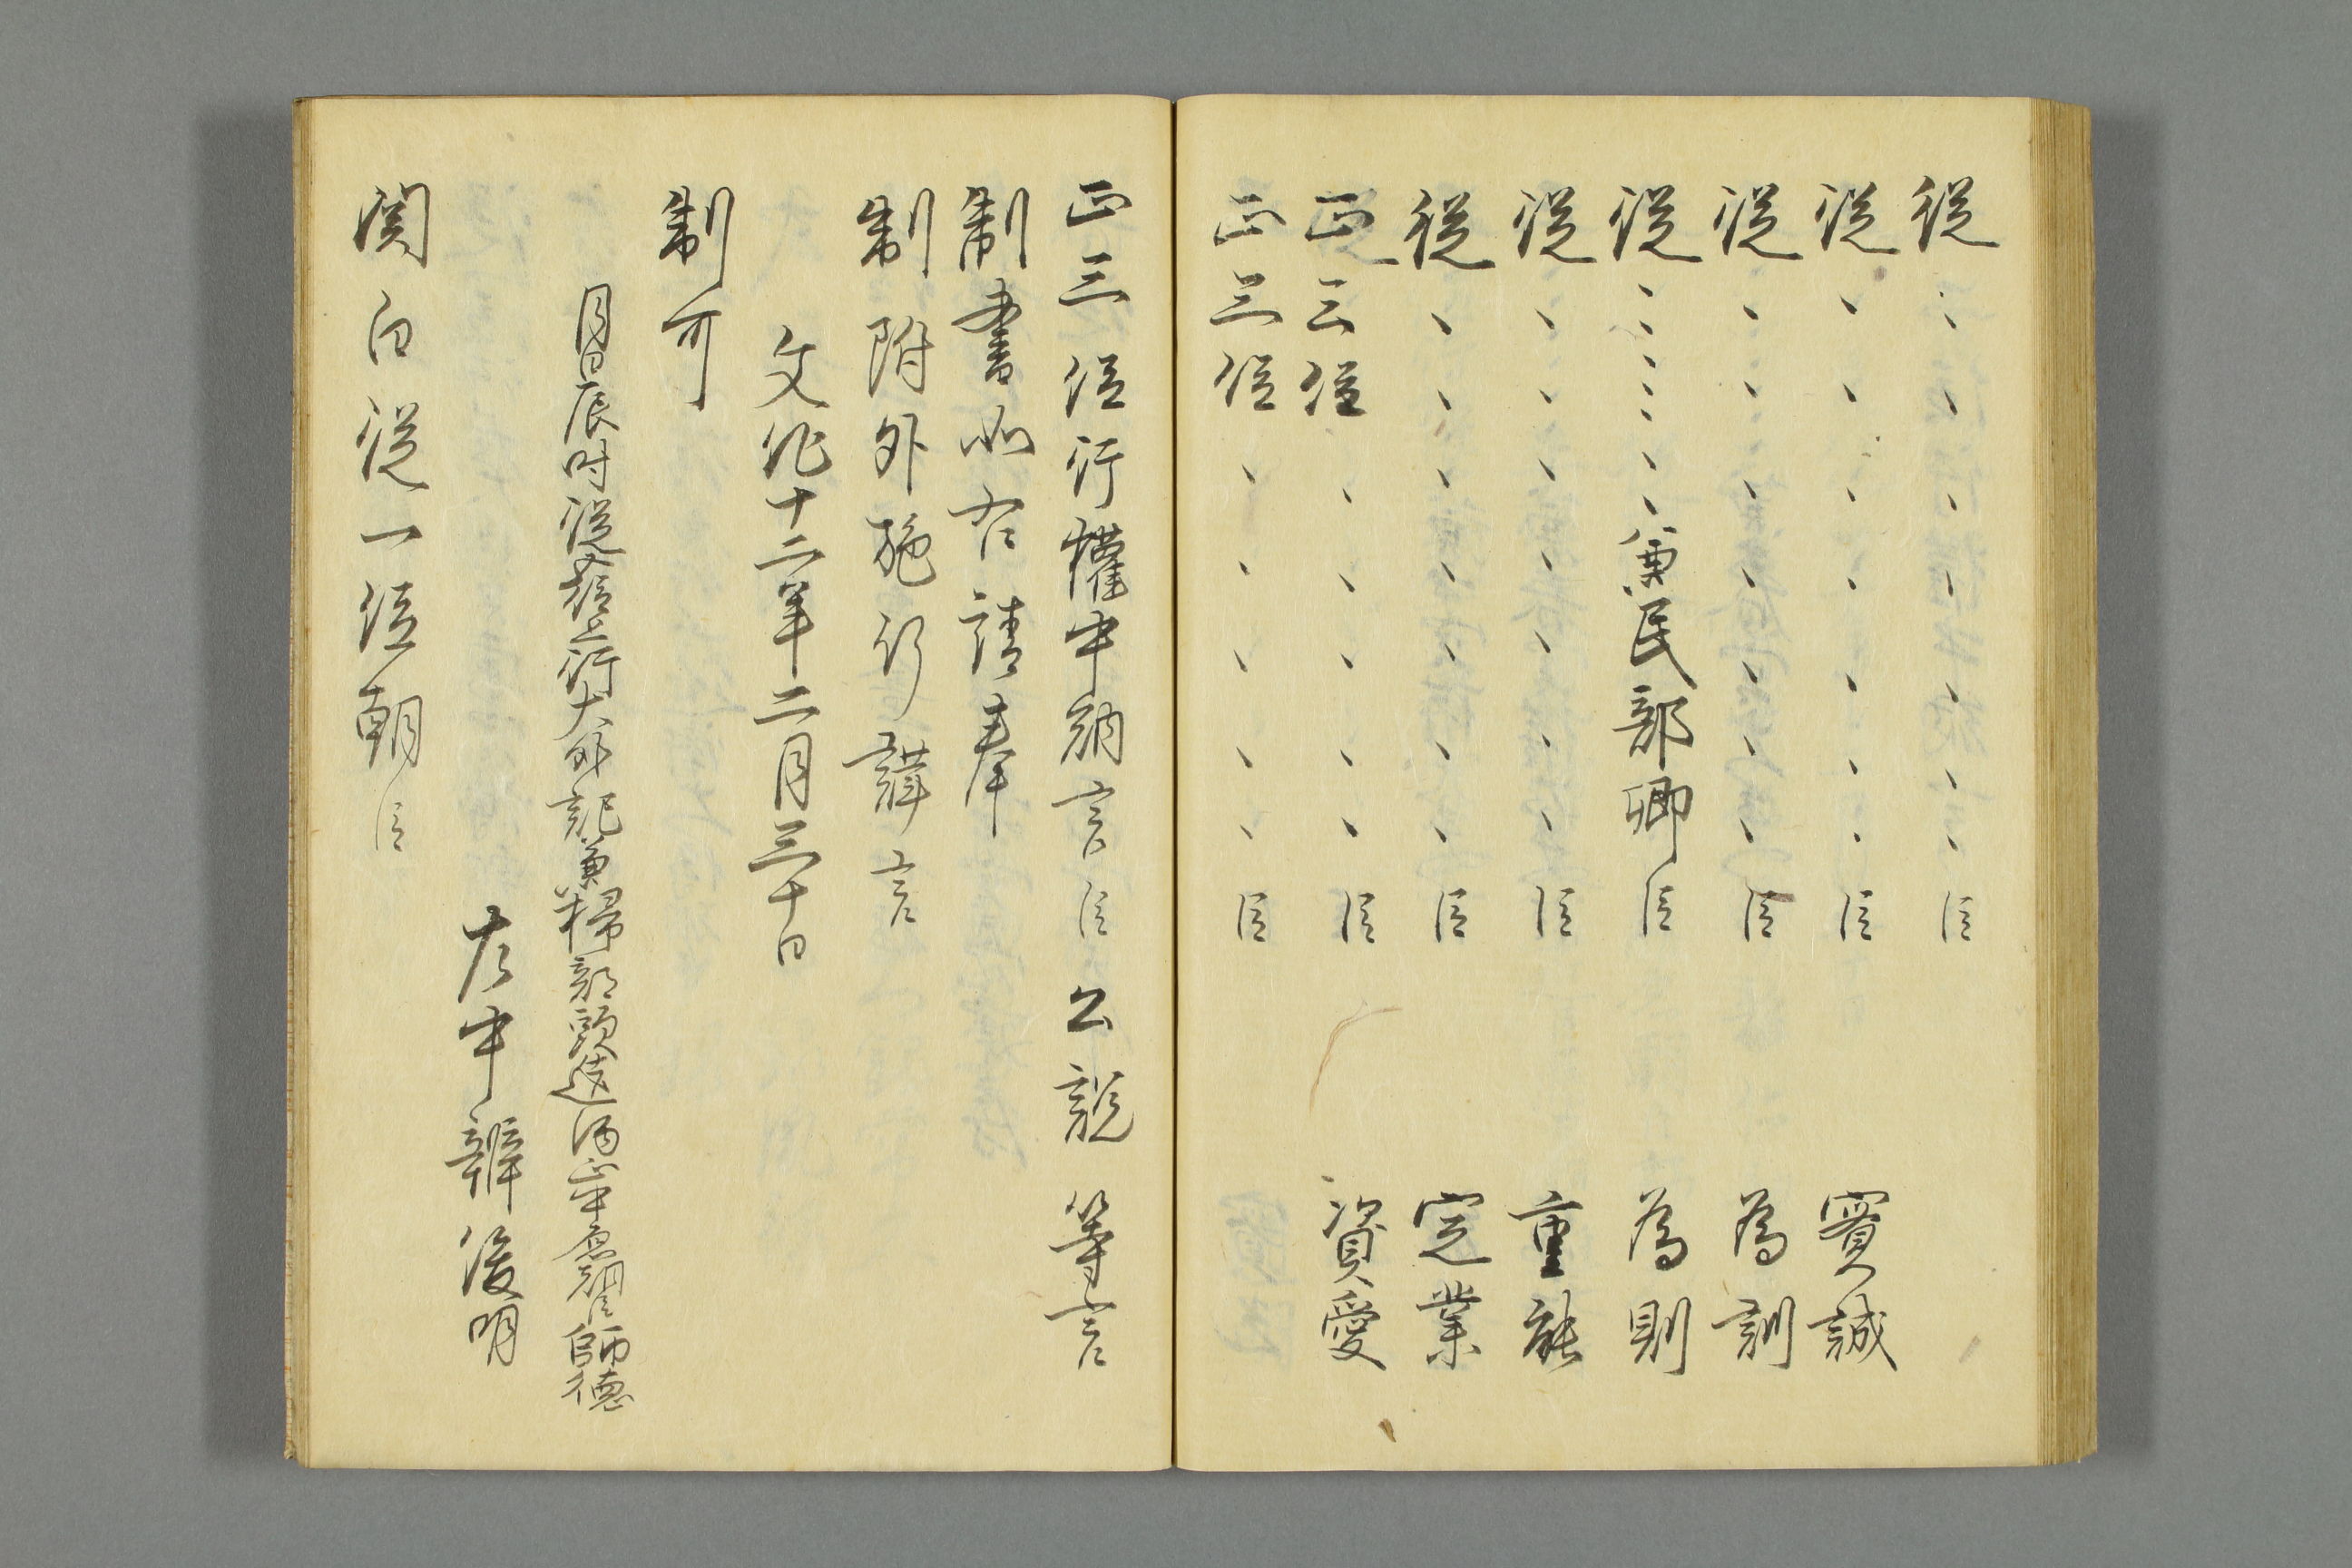 従、、、、、、、臣
従、、、、、、臣 實誠
従、、、、、、臣 為訓
従、、、、、、、兼民部卿臣 為則
従、、、、、、臣 重能
従、、、、、、臣 定業
正三位、、、、、臣 資愛
正三位、、、、、臣
正三位行権中納言臣 公説 等言
制書如右請奉
制附外施行謹言
文化十二年二月三十日
制可
月日辰時従四位上行大外記兼掃部頭造酒正中原朝臣師徳
左中辨俊明
関白従一位朝臣